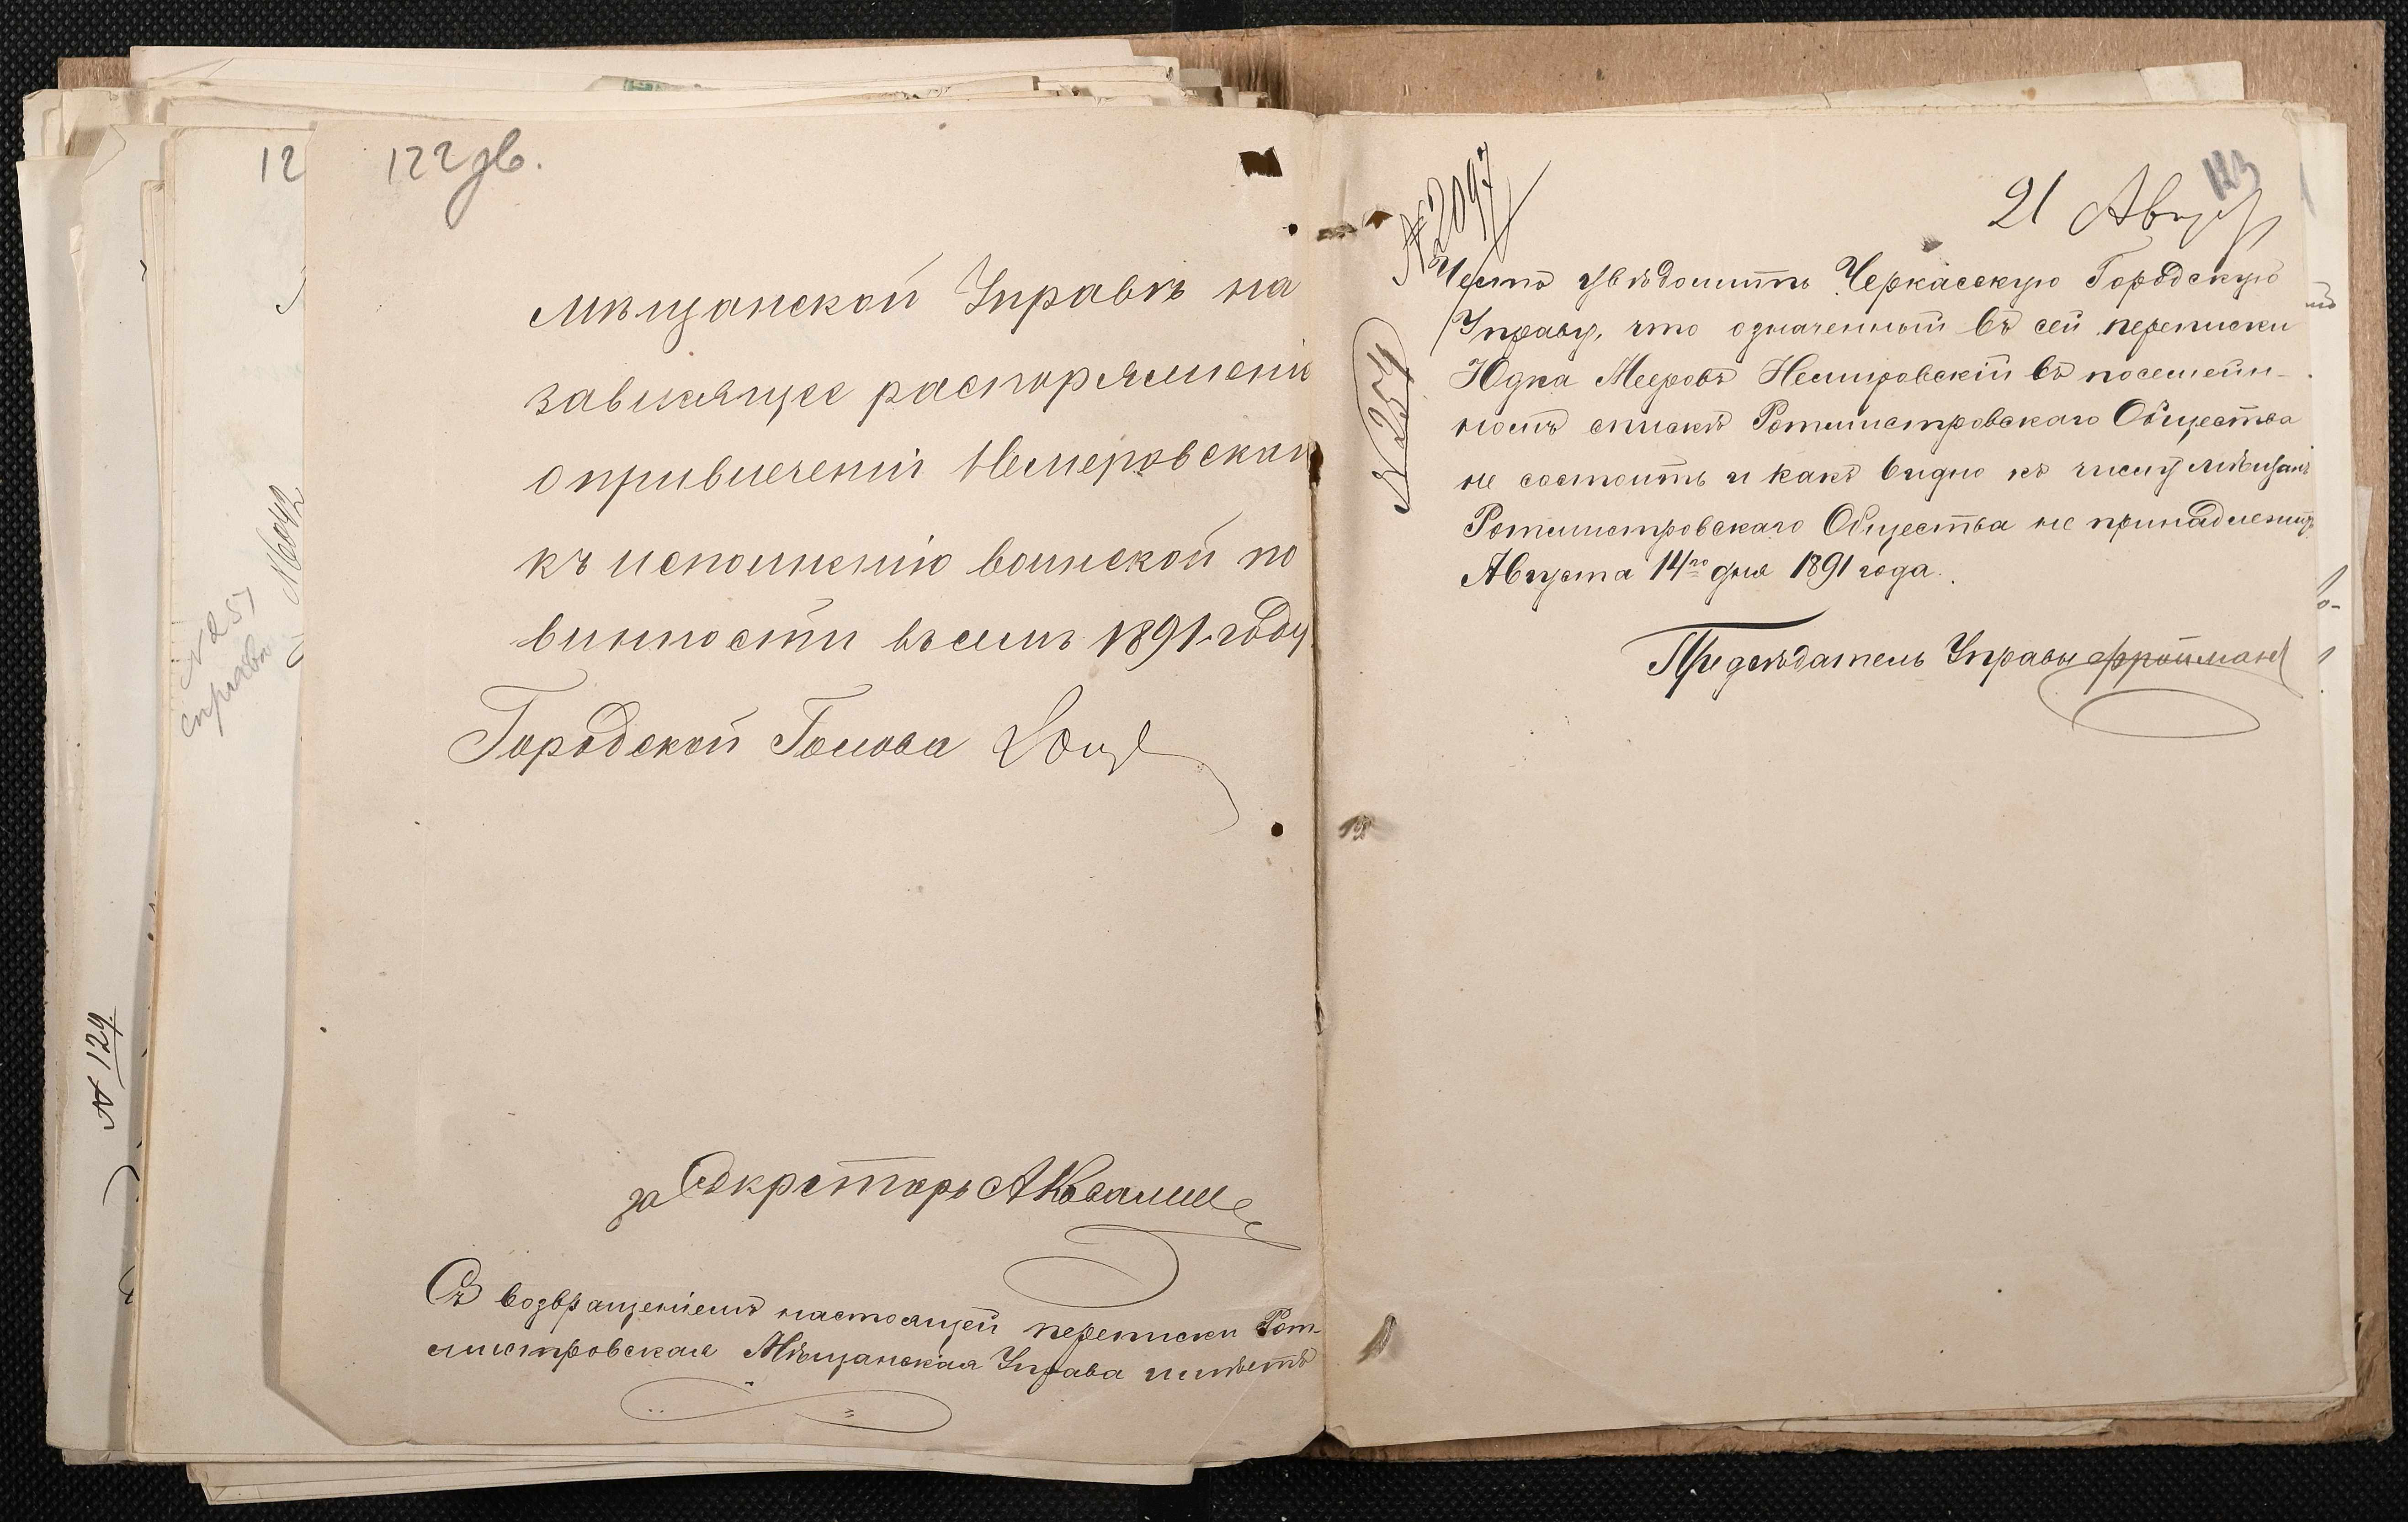 122 зв.
мѣщанской Управѣ на
зависящее распоряженіе
о привлеченіи Немеровскаго
къ исполненію воинской по
винности въ семъ 1891 году
Городской Голова
за Секретарь А Ковалив
Съ возвращеніемъ настоящей переписки Рот-
мистровская Мѣщанская Управа имѣетъ
12
№ 251
справа
№ 129
123
21 Август
№ 2097
Честь увѣдомить Черкасскую Городскую
Управу, что означенный въ сей переписки
Юдка Мееровъ Немировскій въ посемейн-
номъ списки Ротмистровскаго Общества
не состоитъ и какъ видно къ числу мѣщанъ
Ротмистровскаго Общества не принадлежитъ
Августа 14го дня 1891 года.
Предсѣдатель Управы Фройман